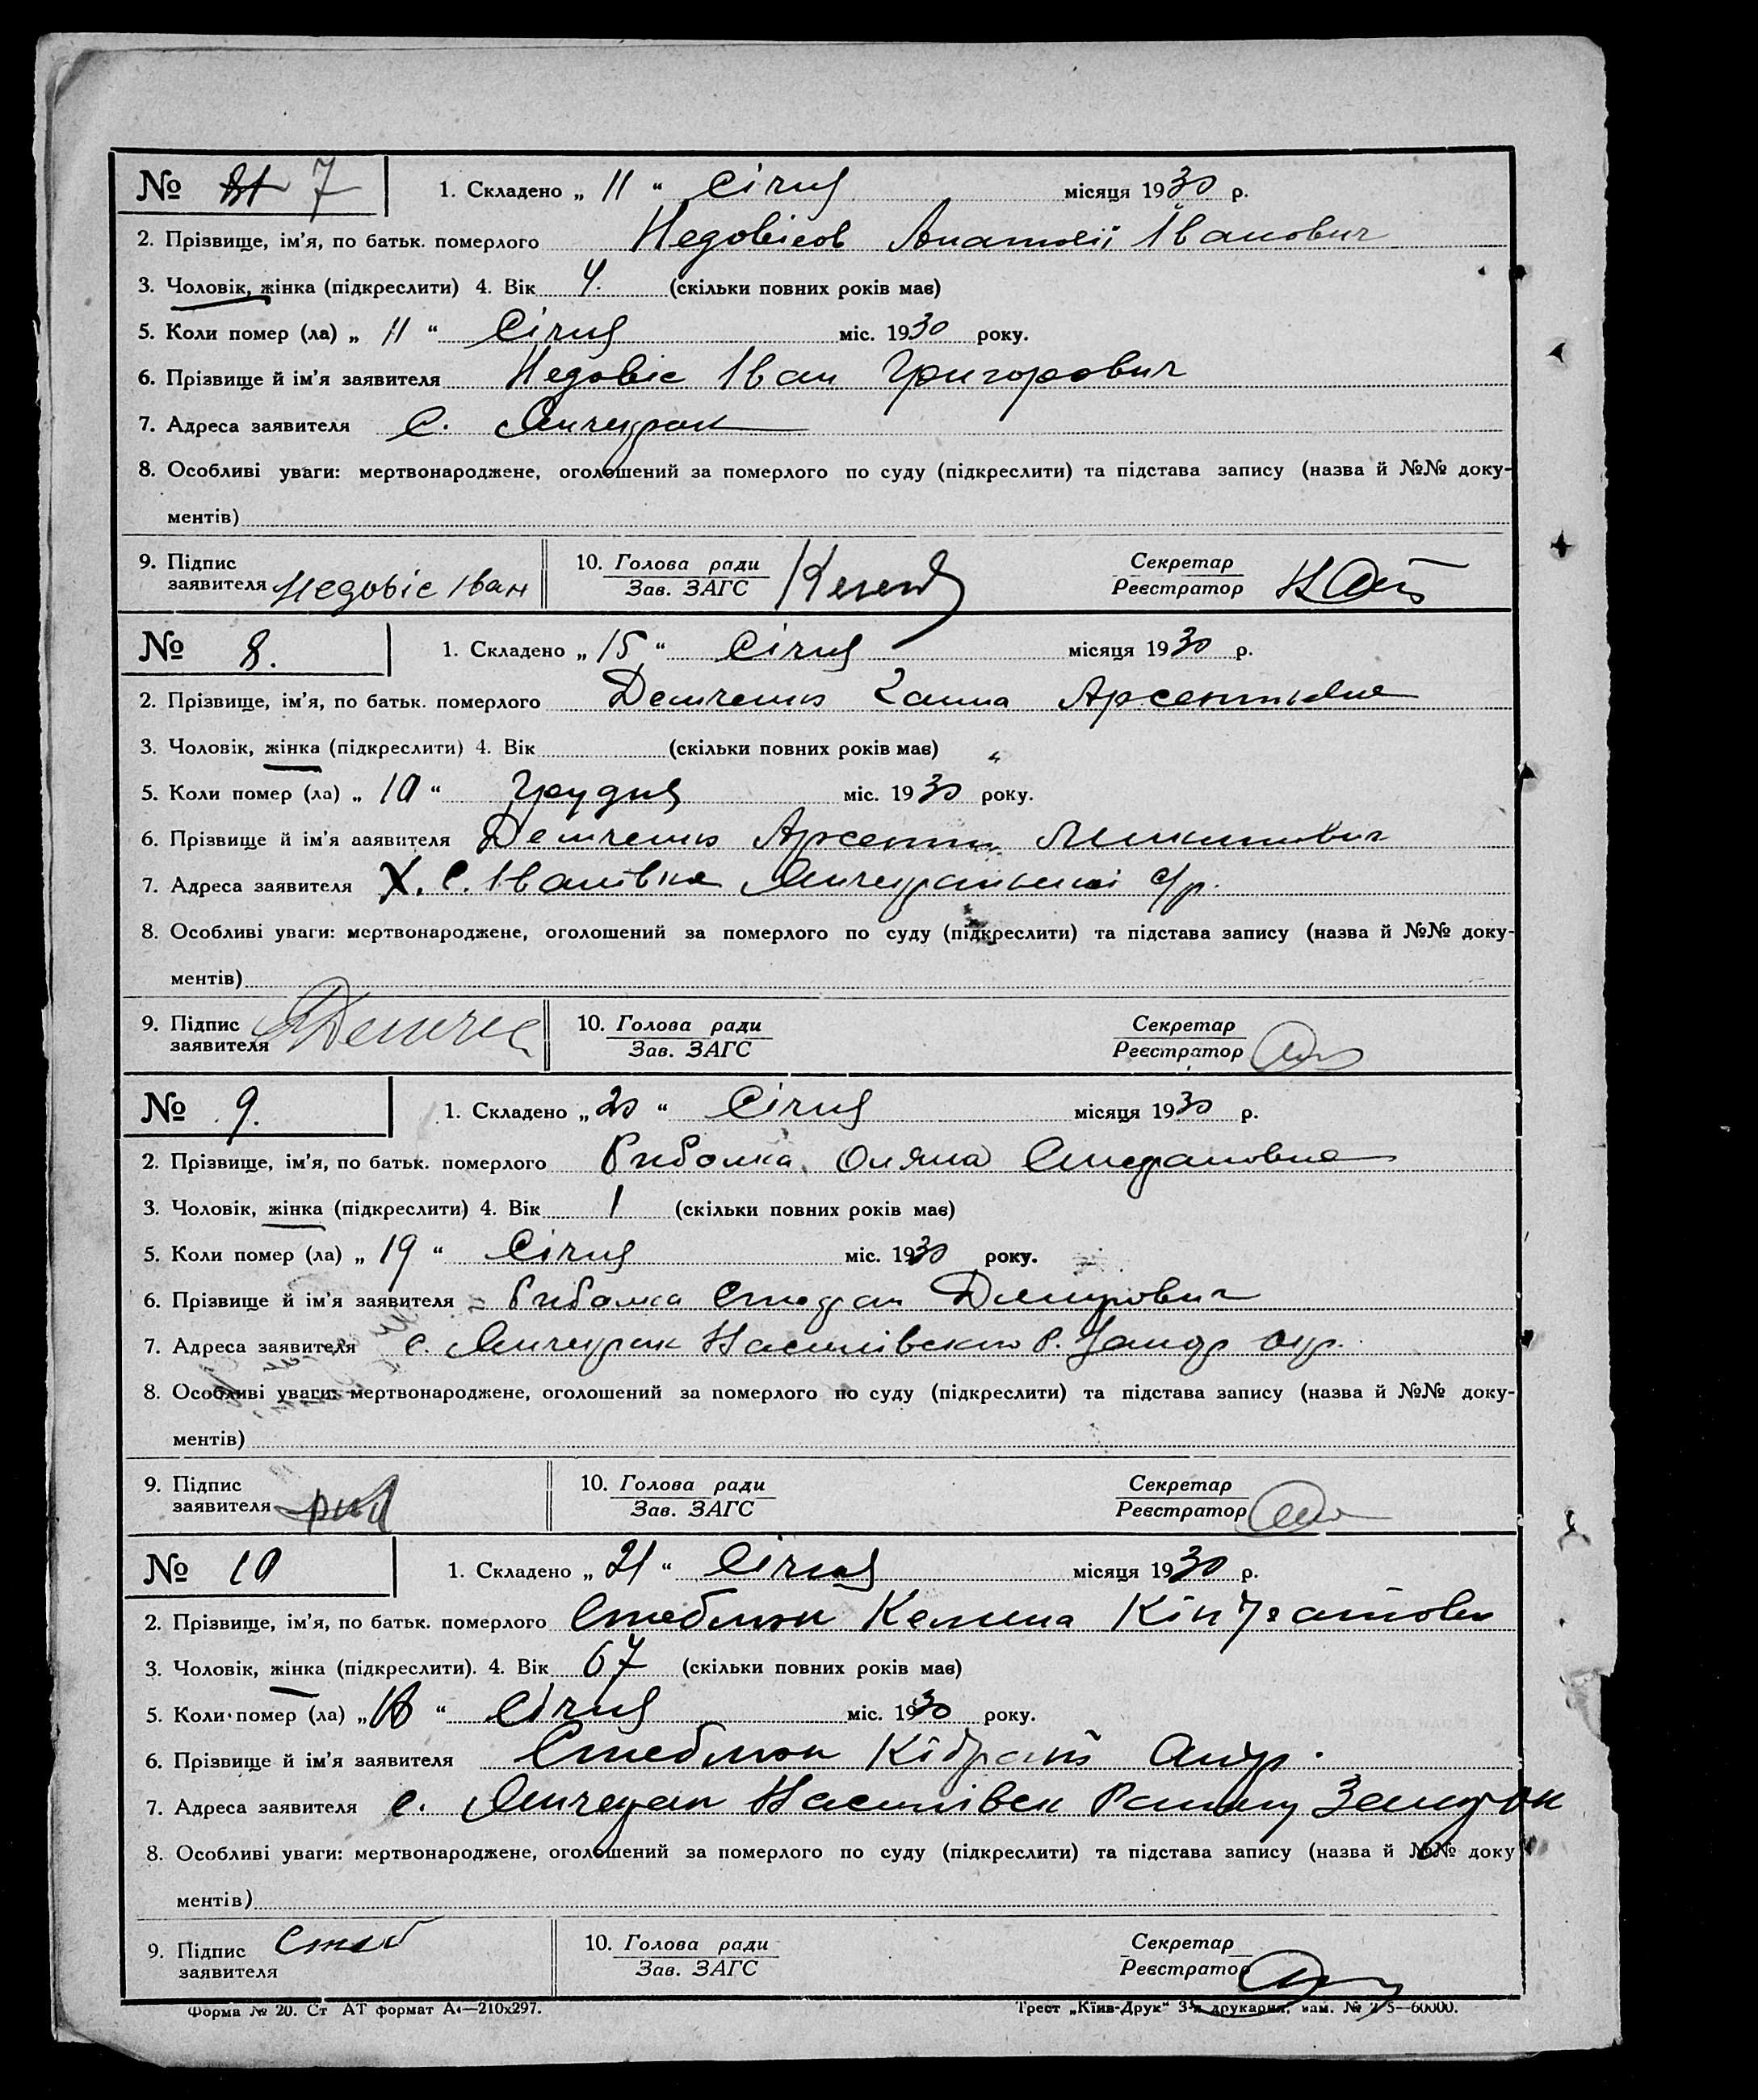 № 7 1. Складено „ 11 “ Січня місяця 1930 р.
2. Прізвище, ім'я, по батьк. померлого Недовісов Анатолій Іванович
3. Чоловік, жінка (підкреслити) 4. Вік 4. (скільки повних років має)
5. Коли помер (ла) „ 11 “ Січня міс. 1930 року.
6. Прізвище й ім'я заявителя Недовіс Іван Григорович
7. Адреса заявителя с. Янчекрак
8. Особливі уваги: мертвонароджене, оголошений за померлого по суду (підкреслити) та підстава запису (назва й №№ доку-
ментів)
9. Підпис заявителя Недовіс Іван 10. Голова ради Зав. ЗАГС Секретар Реєстратор
№ 8. 1. Складено „ 15 “ Січня місяця 1930 р.
2. Прізвище, ім'я, по батьк. померлого Демченко Ганна Арсентьевна
3. Чоловік, жінка (підкреслити) 4. Вік (скільки повних років має)
5. Коли помер (ла) „ 10 “ Грудня міс. 1930 року.
6. Прізвище й ім'я заявителя Демченко Арсентий Микитович
7. Адреса заявителя Х. с. Іванівка Янчекракської с/р.
8. Особливі уваги: мертвонароджене, оголошений за померлого по суду (підкреслити) та підстава запису (назва й №№ доку-
ментів)
9. Підпис заявителя 10. Голова ради Зав. ЗАГС Секретар Реєстратор
№ 9. 1. Складено „ 20 “ Січня місяця 1930 р.
2. Прізвище, ім'я, по батьк. померлого Рибалка Оляна Стефановна
3. Чоловік, жінка (підкреслити) 4. Вік 1 (скільки повних років має)
5. Коли помер (ла) „ 19 “ Січня міс. 1930 року.
6. Прізвище й ім'я заявителя Рибалка Стефан Дмитрович
7. Адреса заявителя с. Янчекрак Василівского Р. Запор окр.
8. Особливі уваги: мертвонароджене, оголошений за померлого по суду (підкреслити) та підстава запису (назва й №№ доку-
ментів)
9. Підпис заявителя Риб 10. Голова ради Зав. ЗАГС Секретар Реєстратор
№ 10 1. Складено „ 21 “ Січня місяця 1930 р.
2. Прізвище, ім'я, по батьк. померлого Стеблюк Килина Кіндратовн
3. Чоловік, жінка (підкреслити). 4. Вік 67 (скільки повних років має)
5. Коли помер (ла) „ “ Січня міс. 1930 року.
6. Прізвище й ім'я заявителя Стеблюк Кідрат
7. Адреса заявителя с. Янчекрак Василівск Району Запор ок
8. Особливі уваги: мертвонароджене, оголошений за померлого по суду (підкреслити) та підстава запису (назва й №№ доку
ментів)
9. Підпис заявителя Стеб 10. Голова ради Зав. ЗАГС Секретар Реєстратор
Форма № 20. Ст АТ формат А4—210х297. Трест „Київ-Друк“ 3-я друкарня, зам. № 60000.